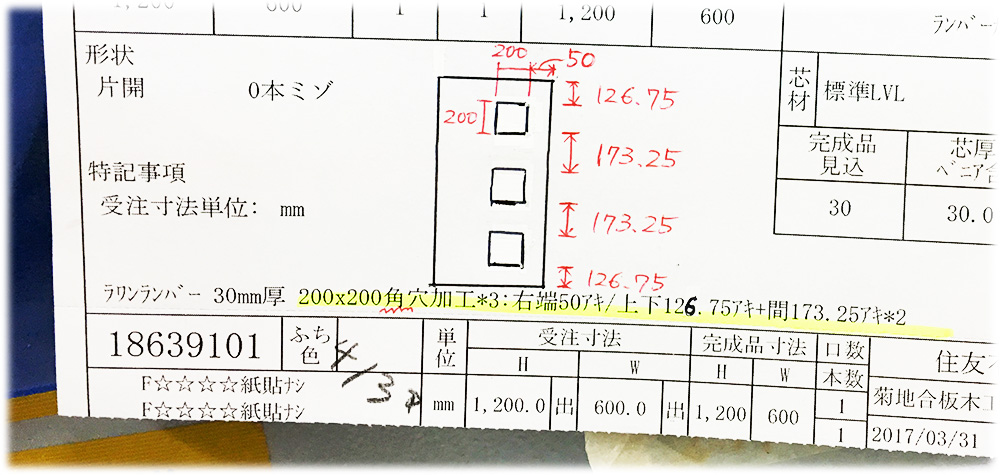 1,200 600 1 1 1,200 600
ﾗﾝﾊﾞｰ
形状
片開 0本ミゾ
200
50
126.75
200
173.25
173.25
126.75
芯材 標準LVL
完成品見込
芯厚
ﾍﾞﾆｱ合
30 30.0
特記事項
受注寸法単位: mm
ﾗﾜﾝﾗﾝﾊﾞｰ 30mm厚 200x200角穴加工*3:右端50ｱｷ/上下126.75ｱｷ+間173.25ｱｷ*2
18639101 ふち色
F☆☆☆☆紙貼ﾅｼ
F☆☆☆☆紙貼ﾅｼ
単位 受注寸法 完成品寸法 口数
H W H W 本数
mm 1,200.0 出 600.0 出 1,200 600 1
1
住友
菊地合板木工
2017/03/31